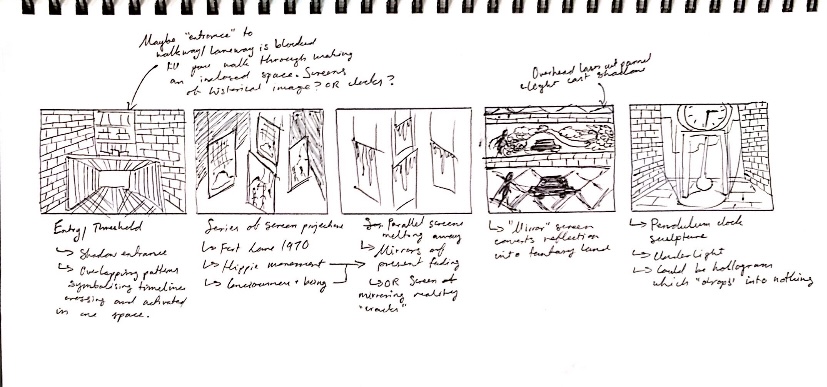 Maybe "entrance" to
walkway/laneway is blocked
till you walk through making
an inclosed space. Screens
of historical image? OR clocks?
Overhead laser cut panel
light cast shadow
Entry/Threshold
↳ Shadow entrance
↳ Overlapping patterns
symbolising timelines
crossing and activated
in one space.
Series of screen projections
↳ Fest Lane 1970
↳ Hippie movement
↳ Conciousness + being
Parallel screens
melting away
↳ Mirrors of
present fading
↳ OR Screen of
mirroring reality
"cracks"
↳ "Mirror" screen
converts reflection
into fantasy land
↳ Pendulum clock
sculpture
↳ Under light
↳ Could be hollogram
which "drops" into nothing